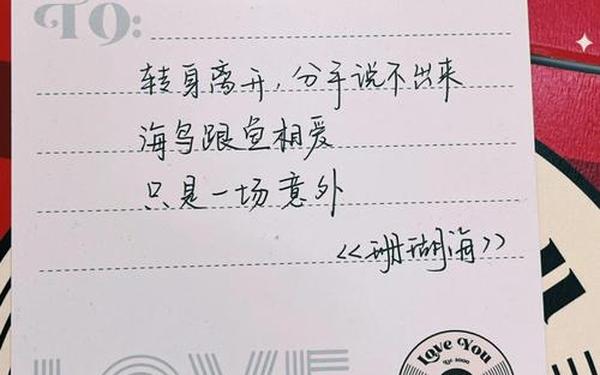 TO:
转身离开,分手说不出来
海鸟跟鱼相爱
只是一场意外
<<珊瑚海>>
LOVE
Love You